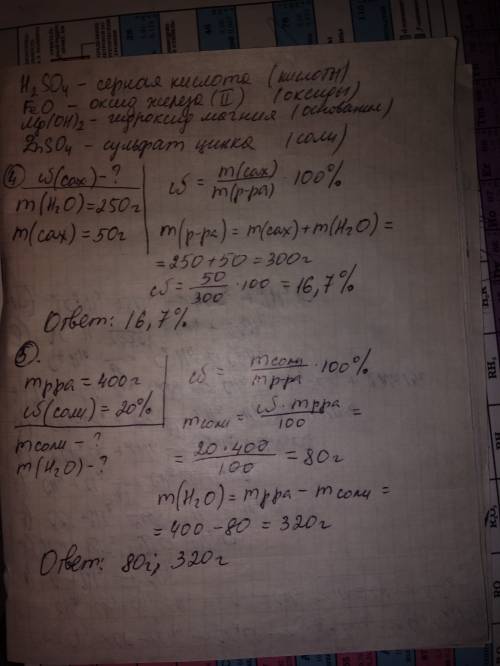 H₂SO₄ – серная кислота (кислоты)
FeO – оксид железа (II) (оксиды)
Mg(OH)₂ – гидроксид магния (основания)
ZnSO₄ – сульфат цинка (соли)
④ ω(сах) – ?
m(H₂O) = 250г
m(сах) = 50г
ω = m(сах)/m(р-ра) · 100%
m(р-ра) = m(сах) + m(H₂O) =
= 250 + 50 = 300г
ω = 50/300 · 100 = 16,7%
Ответ: 16,7%
⑤.
mрра = 400г
ω(соли) = 20%
mсоли – ?
m(H₂O) – ?
ω = mсоли/mрра · 100%
mсоли = ω · mрра/100 =
= 20 · 400/100 = 80г
m(H₂O) = mрра – mсоли =
= 400 – 80 = 320г
Ответ: 80г; 320г